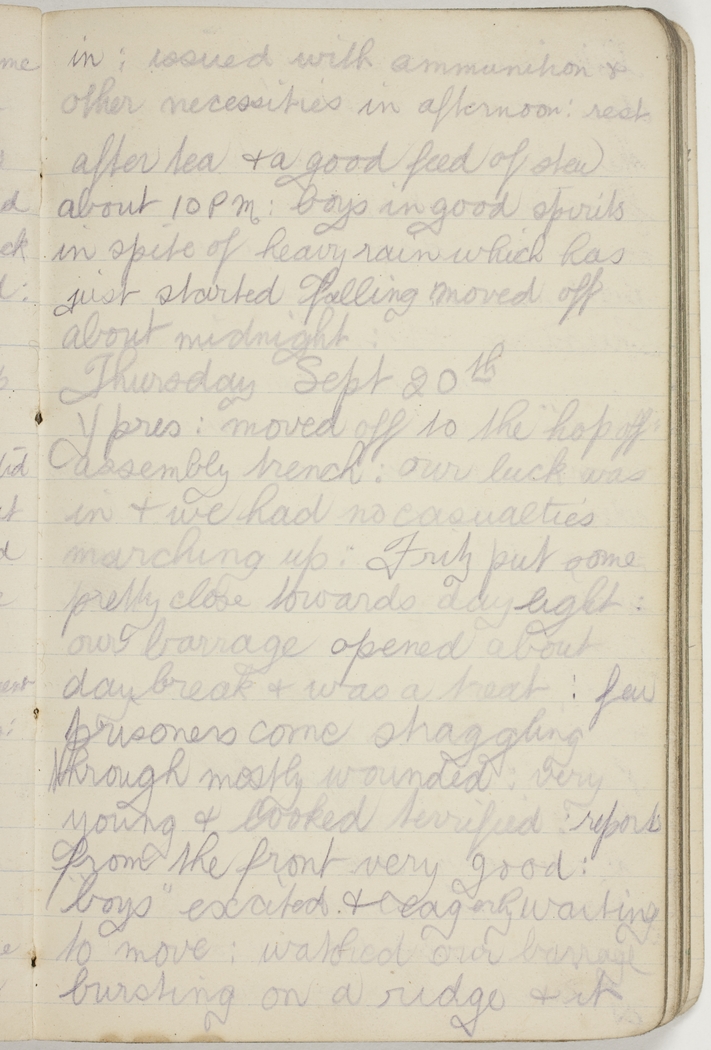 in : issued with ammunition &
other necessities in afternoon : rest
after tea & a good feed of stew
about 10 P M : boys in good spirits
in spite of heavy rain which has
just started falling moved off
about midnight :
Thursday Sept 20th
Ypres : moved off to the "hop off"
assembly trench : our luck was
in & we had no casualties
marching up : Fritz put some
pretty close towards daylight :
our barrage opened about
daybreak & was a treat : few
prisoners come straggling
through mostly wounded : very
young & looked terrified : reports
from the front very good :
"boys" excited & eagerly waiting
to move : watched our barrage
bursting on a ridge & it